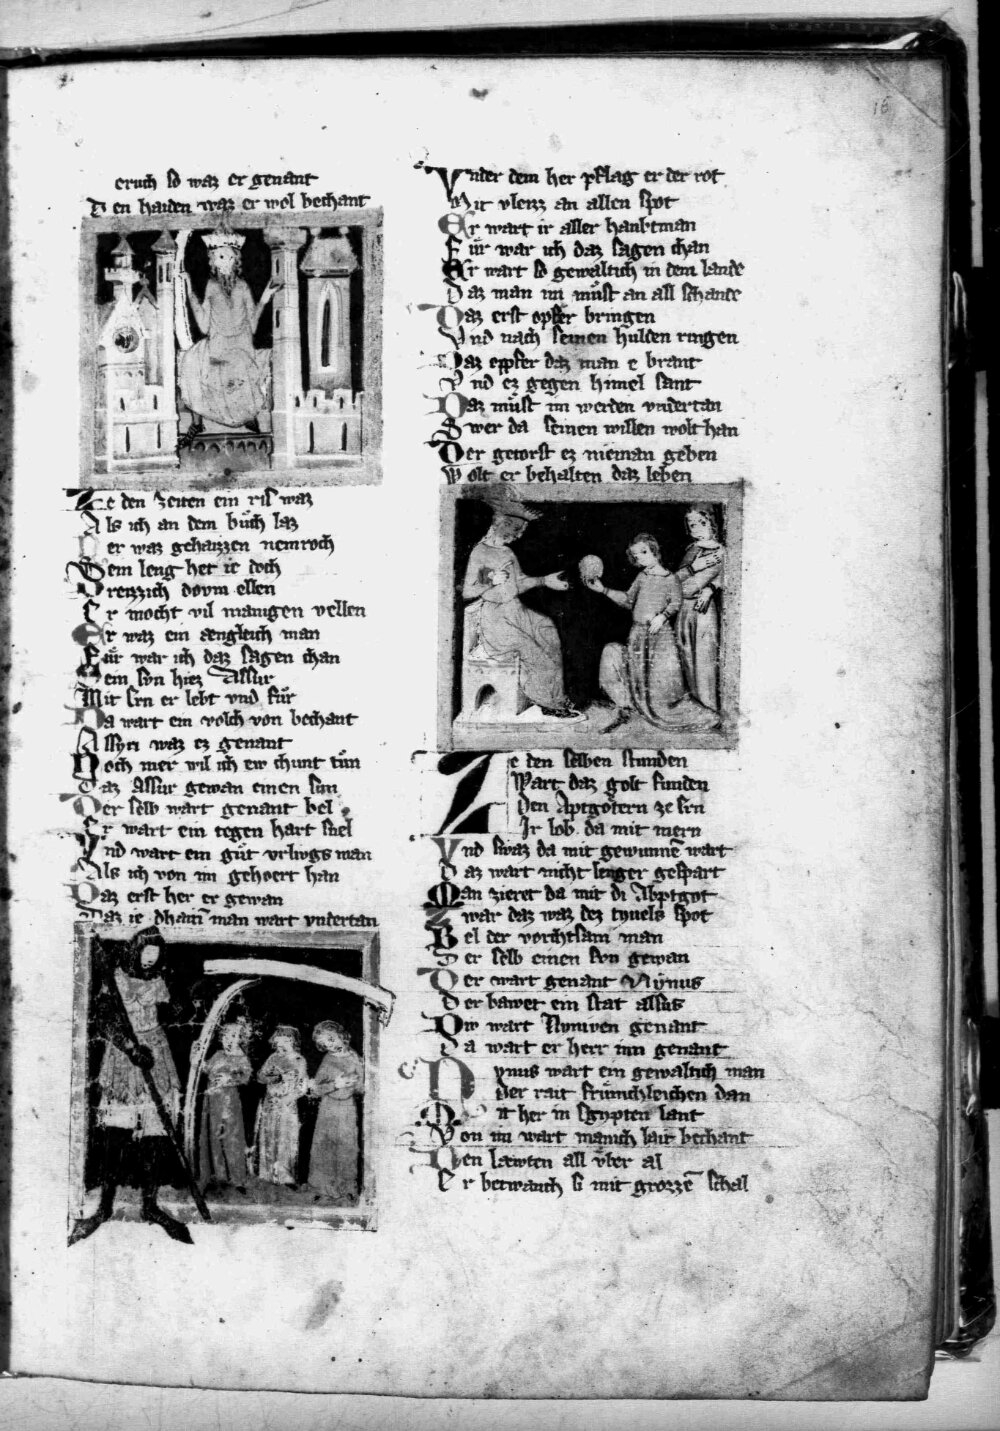 16
eruch so waz er genant
Den haiden waz er wol bechant
Ze den zeiten ein ris waz
Als ich an dem buͤch laz
Der waz gehaizzen nemroch
Sein leng het ie doch
Dreizzich dovm ellen
Er mocht vil manigen vellen
Er waz ein ængleich man
Fuͤr war ich daz sagen chan
Sein syn hiez Assur
Mit srn er lebt vnd fuͤr
Da wart ein volch von bechant
Assyri waz ez genant
Noch mer wil ich ew chunt tuͤn
Daz Assur gewan einen sun
Der selb wart genant bel
Er wart ein tegen hart snel
Vnd wart ein guͤt vrlivgs man
Als ich von im gehoert han
Daz erst her er gewan
Daz ie dhain man wart vndertan
Vnder dem her pflag er der rot
Mit vleizz an allen spot
Er wart ir aller haubtman
Fuͤr war ich daz sagen chan
Er wart so gewaltich in dem lande
Daz man im muͤst an all schande
Daz erst opfer bringen
Vnd nach seinen hulden ringen
Daz opfer daz man e brant
Vnd ez gegen himel sant
Daz muͤst im werden vndertan
Swer da seinen willen wolt han
Der getorst ez nieman geben
Wolt er behalten daz leben
Ze den selben stunden
Wart daz golt funden
Den Aptgoͤtern ze ern
Ir lob da mit mern
Vnd swaz da mit gewunnē wart
Daz wart nicht lenger gespart
Man zieret da mit di Abptgot
Zwar daz waz dez tyuels spot
Bel der vorchtsam man
Der selb einen syn gewan
Der wart genant Nynus
Der bawet ein stat alsus
Div wart Nyniven genant
Da wart er herr inn genant
Nynus wart ein gewaltich man
Der rait frumchleichen dan
Mit her in Egypten lant
Von im wart manich lait bechant
Den læwten all vͤber al
Er betwanch si mit grozzē schal